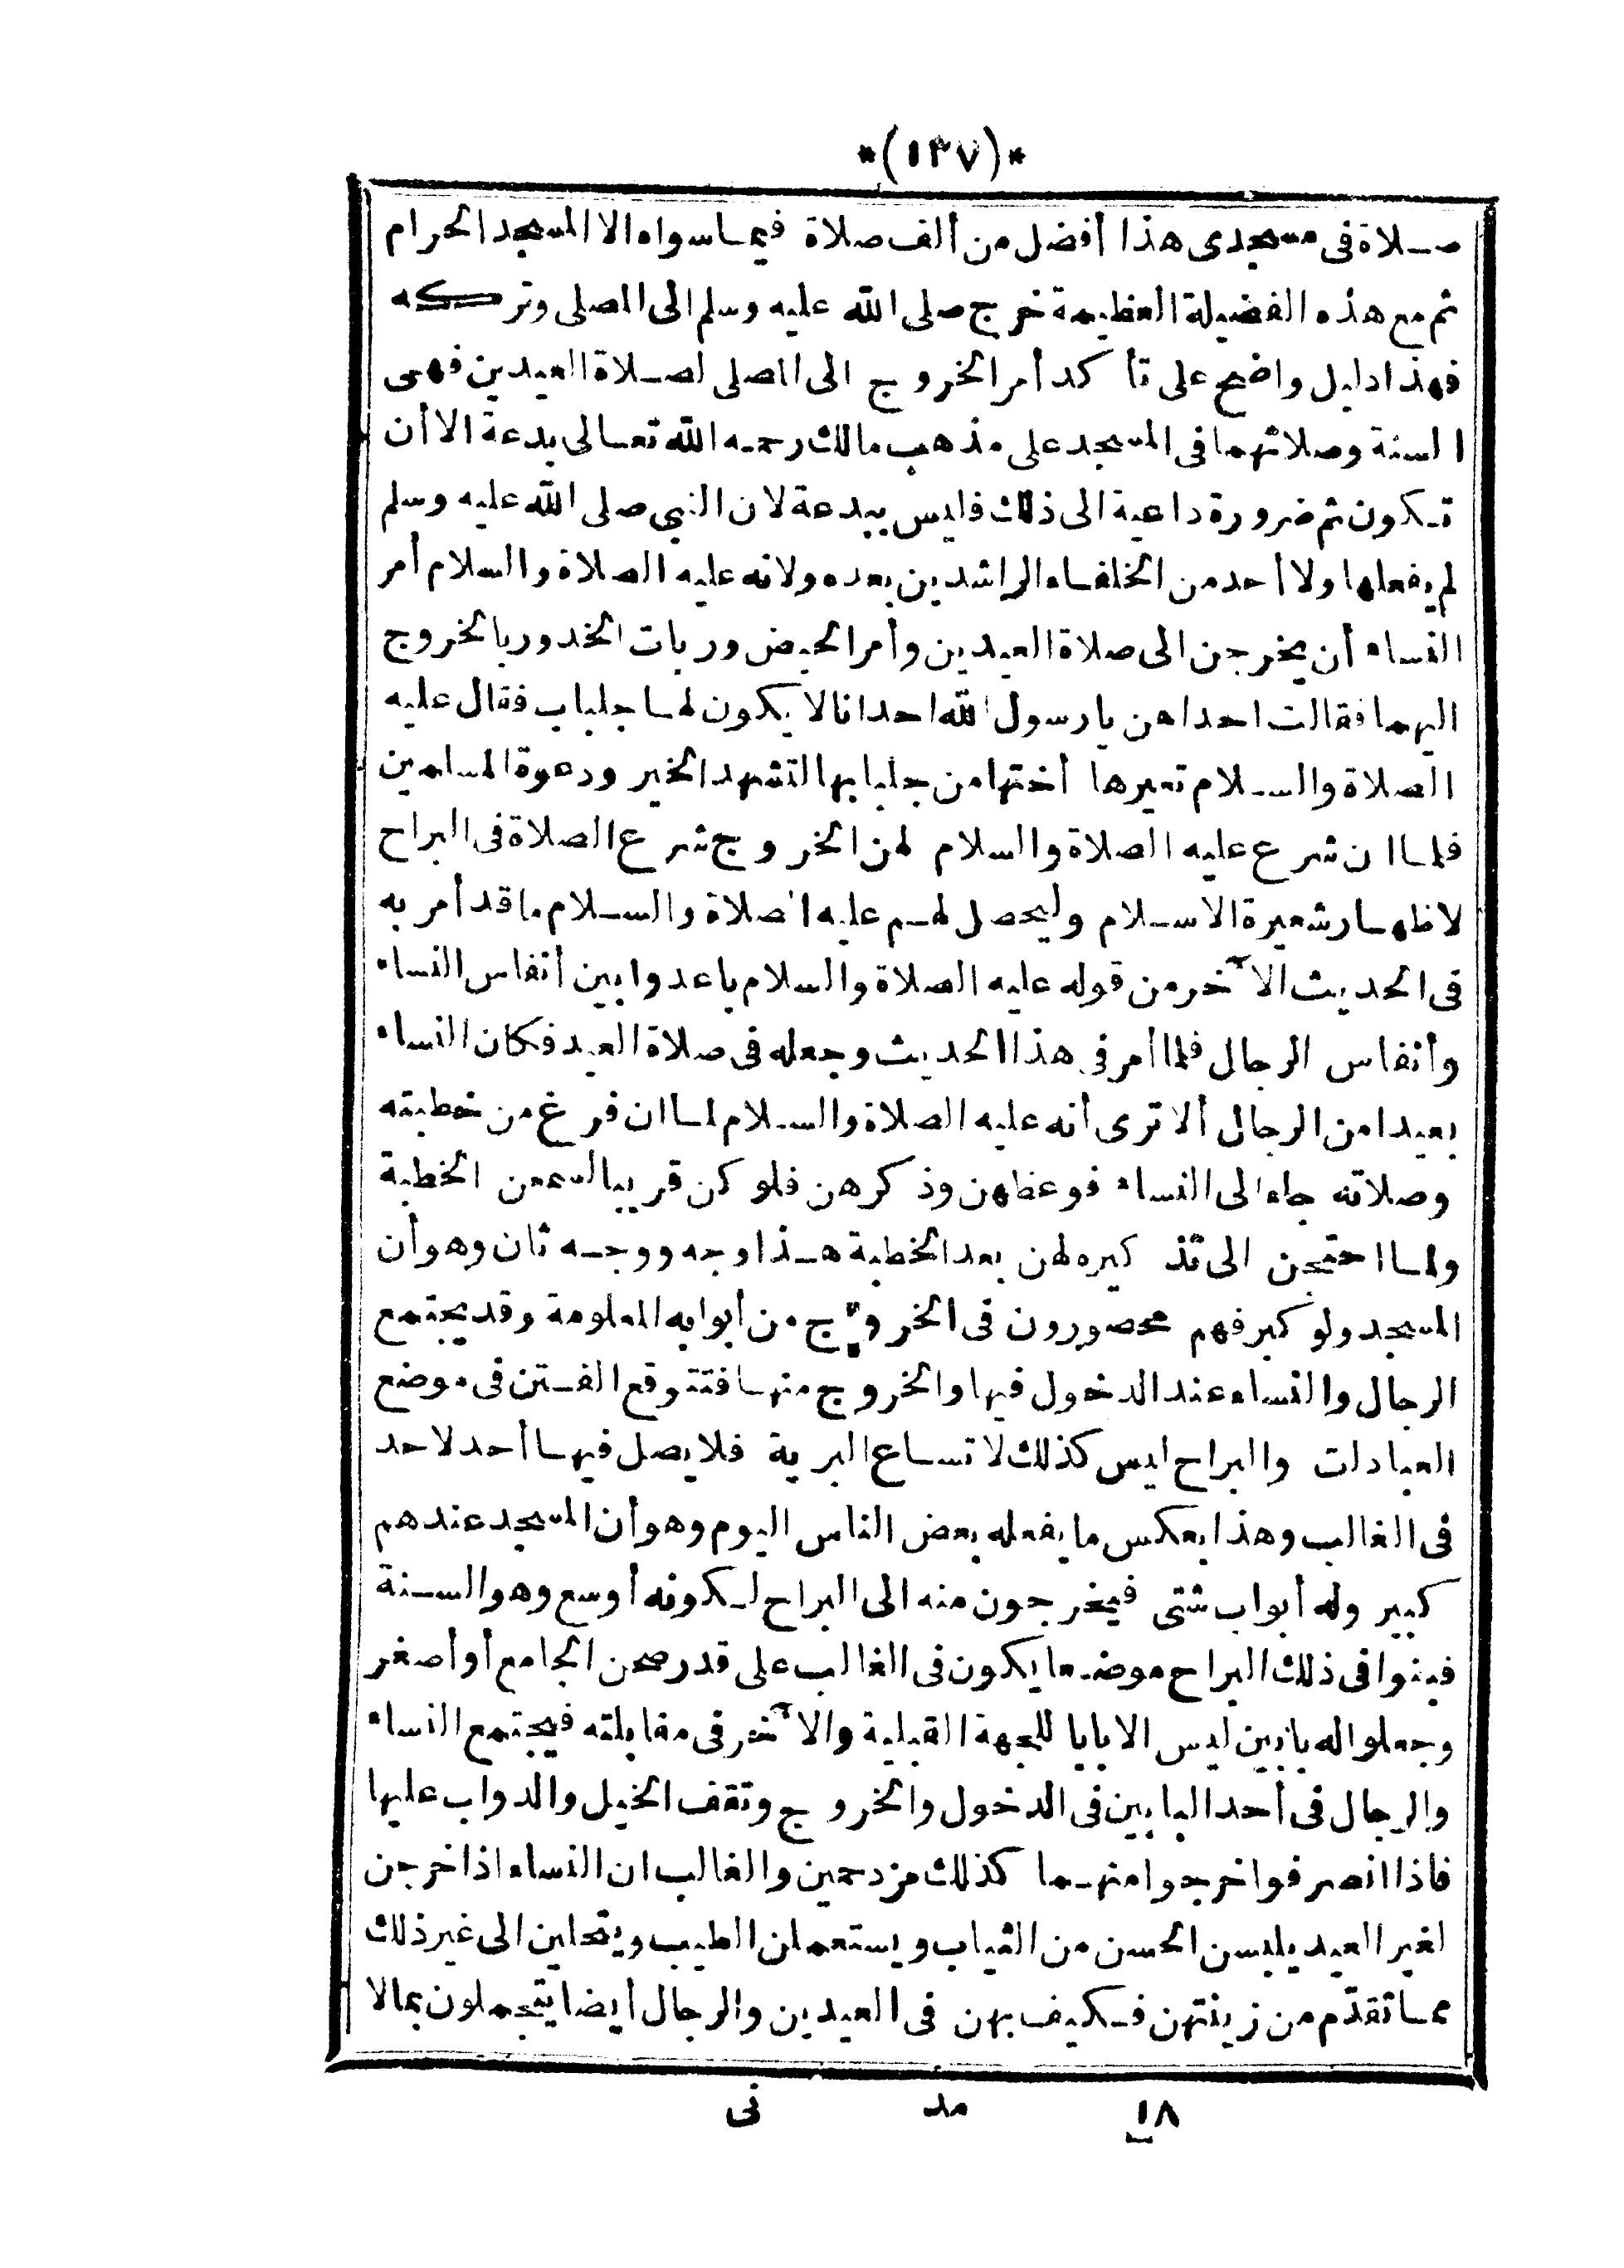 *(١٣٧)*
صلاة فى مسجدى هذا أفضل من ألف صلاة فيما سواه الا المسجد الحرام
ثم مع هذه الفضيلة العظيمة خرج صلى الله عليه وسلم الى المصلى وتركه
فهذا دليل واضح على تأكد أمر الخروج الى المصلى لصلاة العيدين فهى
السنة وصلاتهما فى المسجد على مذهب مالك رحمه الله تعالى بدعة الا أن
تكون ثم ضرورة داعية الى ذلك فليس ببدعة لان النبي صلى الله عليه وسلم
لم يفعلها ولا أحد من الخلفاء الراشدين بعده ولانه عليه الصلاة والسلام أمر
النساء أن يخرجن الى صلاة العيدين وأمر الحيض وربات الخدور بالخروج
اليهما فقالت احداهن يا رسول الله احدانا لا يكون لها جلباب فقال عليه
الصلاة والسلام تعيرها أختها من جلبابها لتشهد الخير ودعوة المسلمين
فلما ان شرع عليه الصلاة والسلام لهن الخروج شرع الصلاة فى البراح
لاظهار شعيرة الاسلام وليحصل لهم عليه الصلاة والسلام ما قد أمر به
فى الحديث الآخر من قوله عليه الصلاة والسلام باعدوا بين أنفاس النساء
وأنفاس الرجال فلما أمر فى هذا الحديث وجعله فى صلاة العيد فكان النساء
بعيدا من الرجال ألا ترى أنه عليه الصلاة والسلام لما ان فرغ من خطبته
وصلاته جاء الى النساء فوعظهن وذكرهن فلو كن قريبا لسمعن الخطبة
ولما احتجن الى تذكيره لهن بعد الخطبة هذا وجه ووجه ثان وهو أن
المسجد ولو كبر فهم محصورون فى الخروج من أبوابه المعلومة وقد يجتمع
الرجال والنساء عند الدخول فيها والخروج منها فتتوقع الفتن فى موضع
العبادات والبراح ليس كذلك لاتساع البرية فلا يصل فيها أحد لاحد
فى الغالب وهذا بعكس ما يفعله بعض الناس اليوم وهو أن المسجد عندهم
كبير وله أبواب شتى فيخرجون منه الى البراح لكونه أوسع وهو السنة
فبنوا فى ذلك البراح موضعا يكون فى الغالب على قدر صحن الجامع أو أصغر
وجعلوا له بابين ليس الا بابا للجهة القبلية والآخر فى مقابلته فيجتمع النساء
والرجال فى أحد البابين فى الدخول والخروج وتقف الخيل والدواب عليها
فاذا انصرفوا خرجوا منهما كذلك مزدحمين والغالب ان النساء اذا خرجن
لغير العيد يلبسن الحسن من الثياب ويستعملن الطيب ويتحلين الى غير ذلك
مما تقدّم من زينتهن فكيف بهن فى العيدين والرجال أيضا يتجملون بما لا
١٨ مد نى